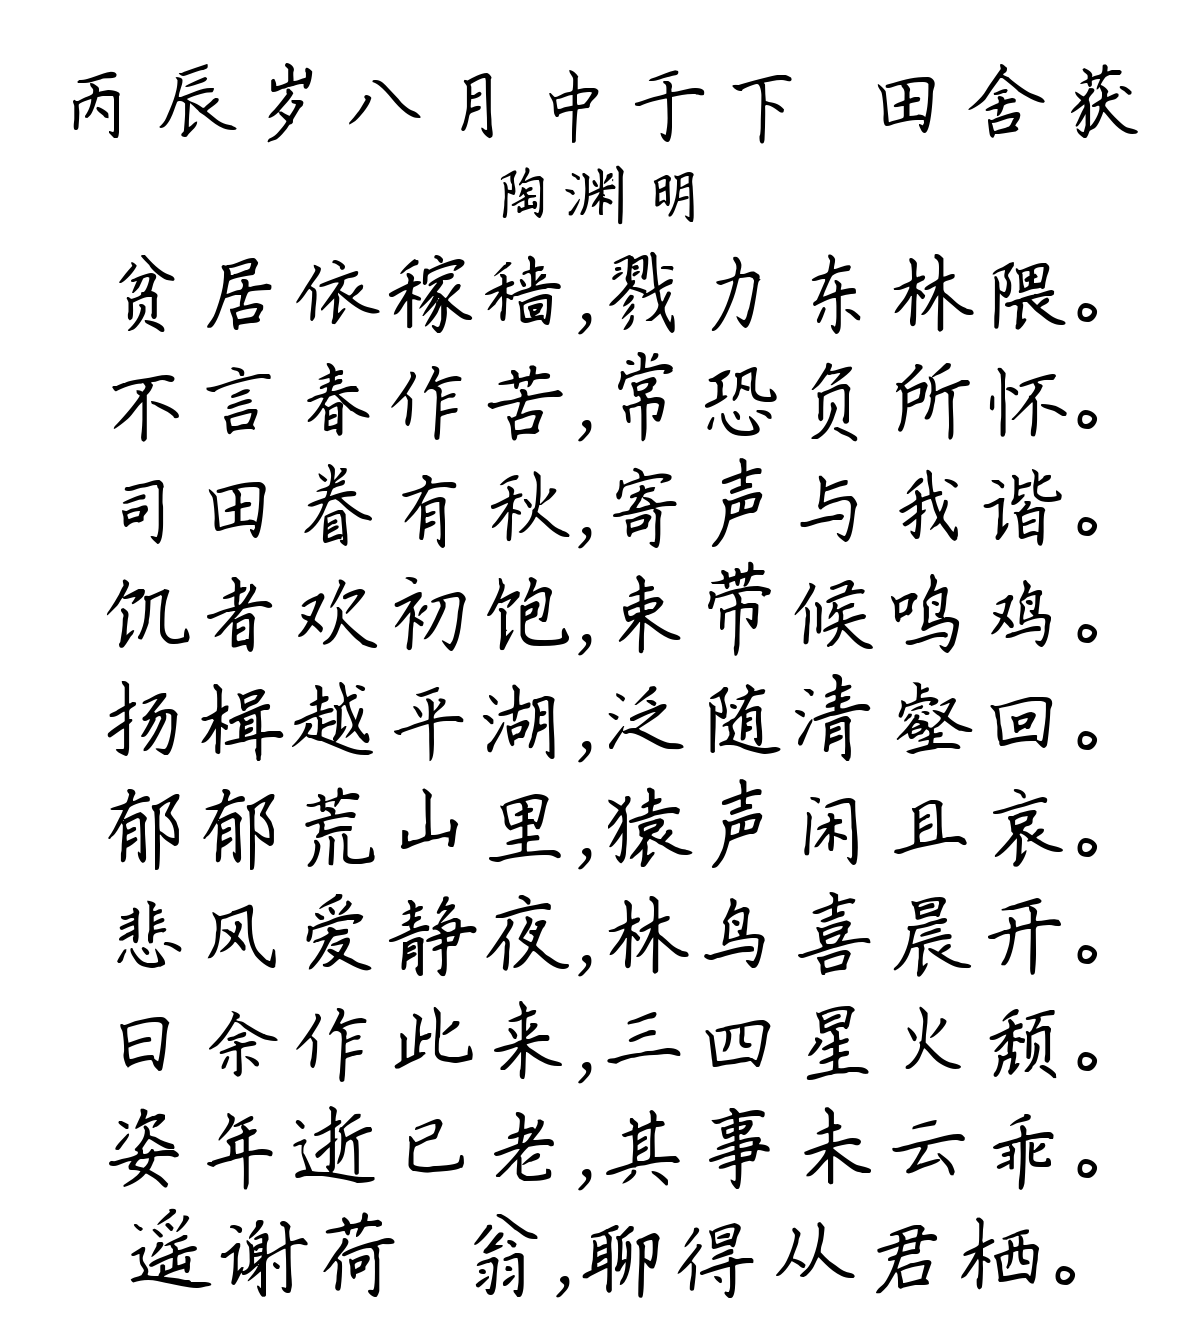 丙辰岁八月中于下 田舍获
陶渊明
贫居依稼穑,戮力东林隈。
不言春作苦,常恐负所怀。
司田眷有秋,寄声与我谐。
饥者欢初饱,束带候鸣鸡。
扬楫越平湖,泛随清壑回。
郁郁荒山里,猿声闲且哀。
悲风爱静夜,林鸟喜晨开。
曰余作此来,三四星火颓。
姿年逝已老,其事未云乖。
遥谢荷 翁,聊得从君栖。